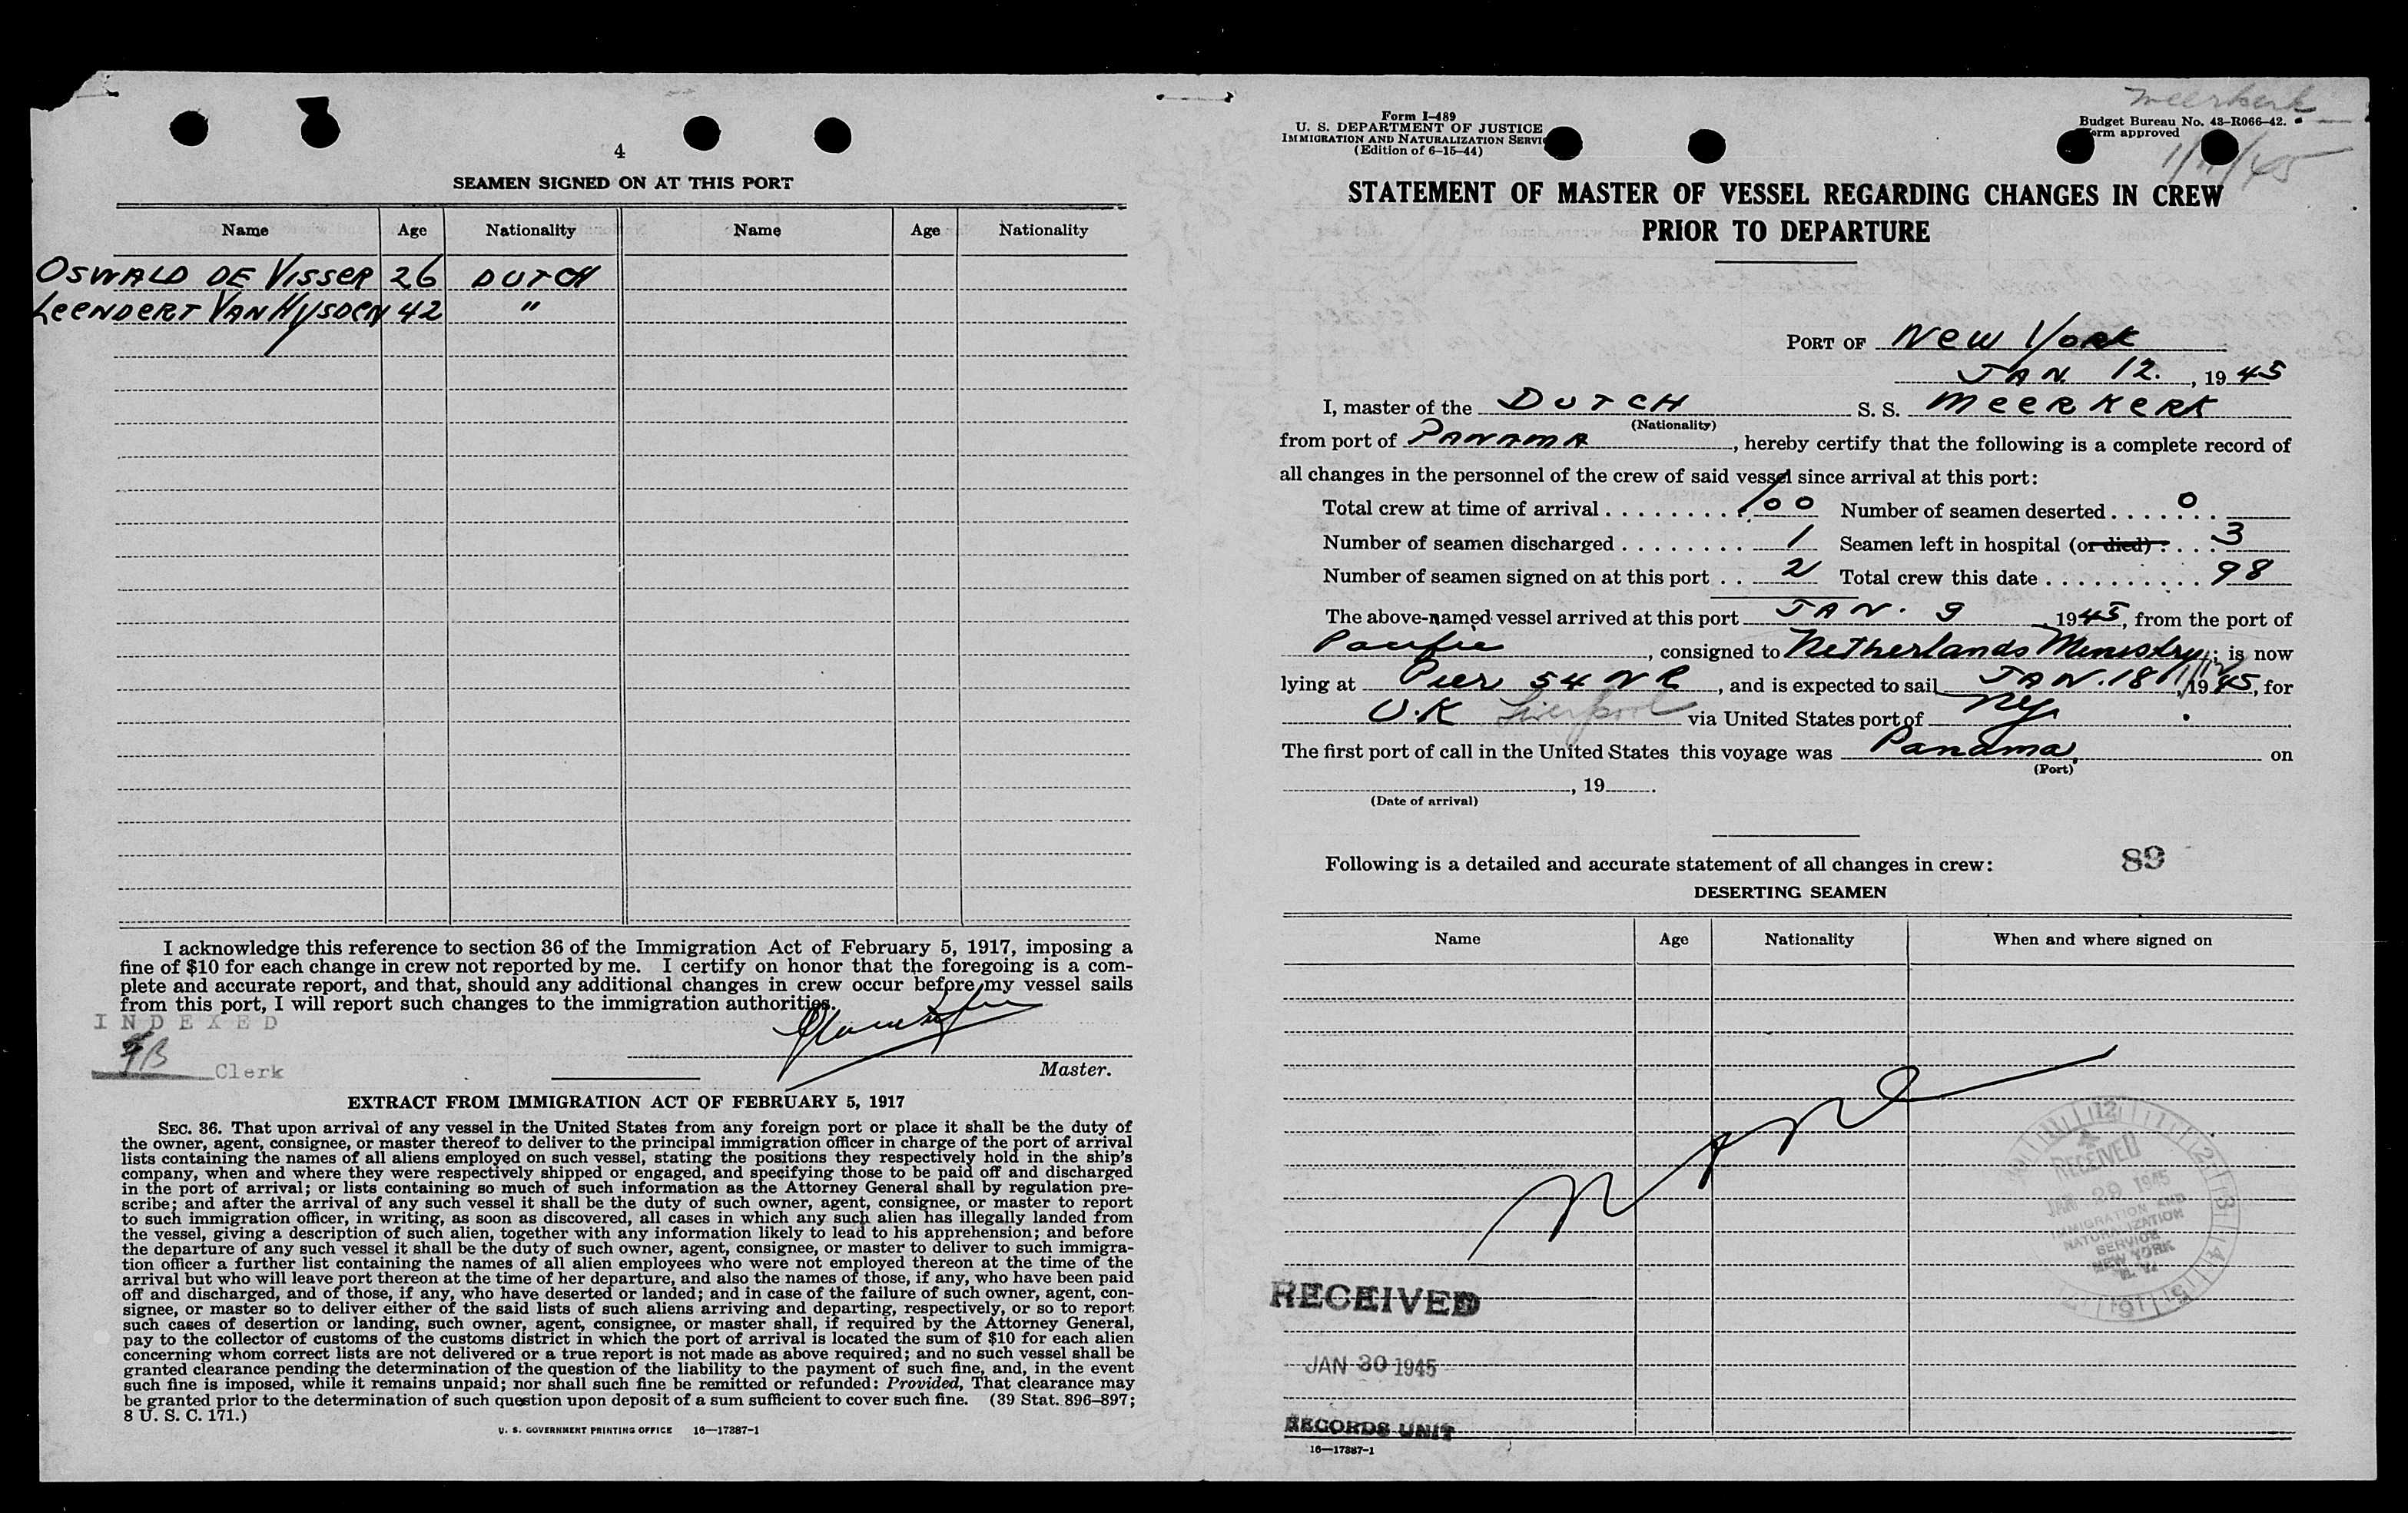 4
SEAMEN SIGNED ON AT THIS PORT
Name Age Nationality Name Age Nationality
OSWALD DE VISSER 26 DUTCH
LEENDERT VAN HYSDEN 42 "
I acknowledge this reference to section 36 of the Immigration Act of February 5, 1917, imposing a
fine of $10 for each change in crew not reported by me. I certify on honor that the foregoing is a com-
plete and accurate report, and that, should any additional changes in crew occur before my vessel sails
from this port, I will report such changes to the immigration authorities.
INDEXED
Clerk
Master.
EXTRACT FROM IMMIGRATION ACT OF FEBRUARY 5, 1917
SEC. 36. That upon arrival of any vessel in the United States from any foreign port or place it shall be the duty of
the owner, agent, consignee, or master thereof to deliver to the principal immigration officer in charge of the port of arrival
lists containing the names of all aliens employed on such vessel, stating the positions they respectively hold in the ship's
company, when and where they were respectively shipped or engaged, and specifying those to be paid off and discharged
in the port of arrival; or lists containing so much of such information as the Attorney General shall by regulation pre-
scribe; and after the arrival of any such vessel it shall be the duty of such owner, agent, consignee, or master to report
to such immigration officer, in writing, as soon as discovered, all cases in which any such alien has illegally landed from
the vessel, giving a description of such alien, together with any information likely to lead to his apprehension; and before
the departure of any such vessel it shall be the duty of such owner, agent, consignee, or master to deliver to such immigra-
tion officer a further list containing the names of all alien employees who were not employed thereon at the time of the
arrival but who will leave port thereon at the time of her departure, and also the names of those, if any, who have been paid
off and discharged, and of those, if any, who have deserted or landed; and in case of the failure of such owner, agent, con-
signee, or master so to deliver either of the said lists of such aliens arriving and departing, respectively, or so to report
such cases of desertion or landing, such owner, agent, consignee, or master shall, if required by the Attorney General,
pay to the collector of customs of the customs district in which the port of arrival is located the sum of $10 for each alien
concerning whom correct lists are not delivered or a true report is not made as above required; and no such vessel shall be
granted clearance pending the determination of the question of the liability to the payment of such fine, and, in the event
such fine is imposed, while it remains unpaid; nor shall such fine be remitted or refunded: Provided, That clearance may
be granted prior to the determination of such question upon deposit of a sum sufficient to cover such fine. (39 Stat. 896–897;
8 U. S. C. 171.)
U. S. GOVERNMENT PRINTING OFFICE 16—17387-1
Meerkerk
Form I-489
U. S. DEPARTMENT OF JUSTICE
IMMIGRATION AND NATURALIZATION
(Edition of 6-15-44)
Budget Bureau No. 43-R066-42.
approved
STATEMENT OF MASTER OF VESSEL REGARDING CHANGES IN CREW
PRIOR TO DEPARTURE
PORT OF New York
JAN. 12., 1945
I, master of the DUTCH S. S. MEERKERK
(Nationality)
from port of PANAMA, hereby certify that the following is a complete record of
all changes in the personnel of the crew of said vessel since arrival at this port:
Total crew at time of arrival . . . . . . . . 100 Number of seamen deserted . . . . . . . 0
Number of seamen discharged . . . . . . . . 1 Seamen left in hospital (or died) . . . . 3
Number of seamen signed on at this port . . 2 Total crew this date . . . . . . . . . . 98
The above-named vessel arrived at this port JAN. 9 1945, from the port of
Pacific, consigned to Netherlands Ministry; is now
lying at Pier 54 NR, and is expected to sail JAN. 18, 1945, for
U.K Liverpool via United States port of NY.
The first port of call in the United States this voyage was Panama, on
(Port)
, 19 .
(Date of arrival)
Following is a detailed and accurate statement of all changes in crew: 89
DESERTING SEAMEN
Name Age Nationality When and where signed on
None
RECEIVED
JAN 29 1945
IMMIGRATION AND
NATURALIZATION
SERVICE
NEW YORK
N. Y.
RECEIVED
JAN 30 1945
RECORDS UNIT
16—17387-1